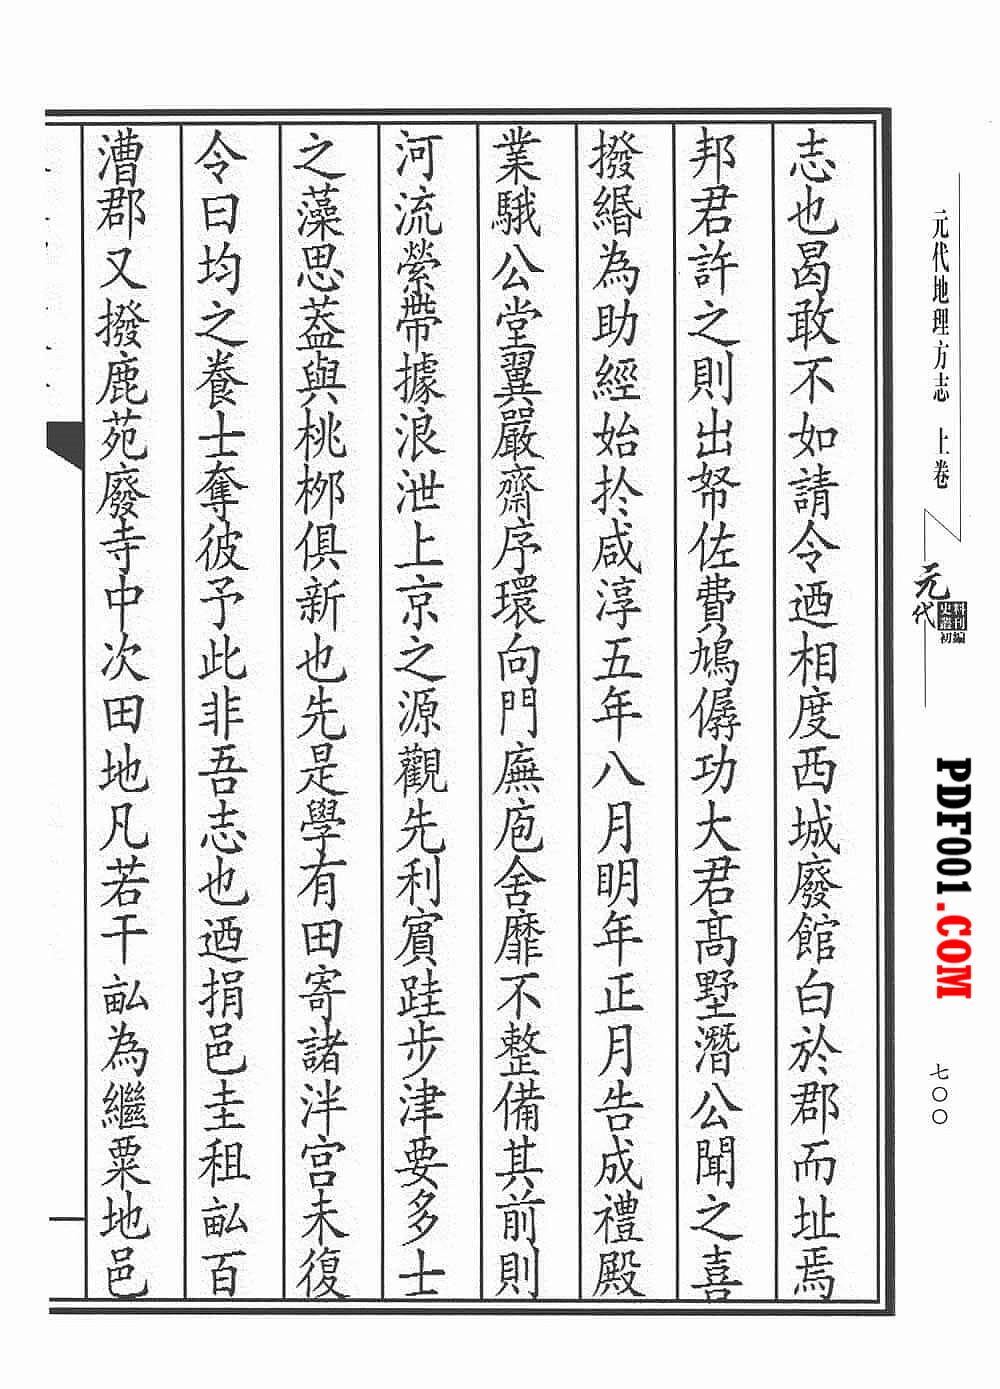 志也曷敢不如請令迺相度西城廢館白於郡而址焉
邦君許之則出帑佐費鳩僝功大君高墅潛公聞之喜
撥緡為助經始於咸淳五年八月明年正月告成禮殿
業騀公堂翼嚴齋序環向門廡庖舍靡不整備其前則
河流縈帶據浪泄上京之源觀先利賓跬步津要多士
之藻思葢與桃柳俱新也先是學有田寄諸泮宮未復
令曰均之養士奪彼予此非吾志也迺捐邑圭租畝百
漕郡又撥鹿苑廢寺中次田地凡若干畝為繼粟地邑
元代地理方志 上卷
元代史料叢刊初編
PDF001.COM
七〇〇